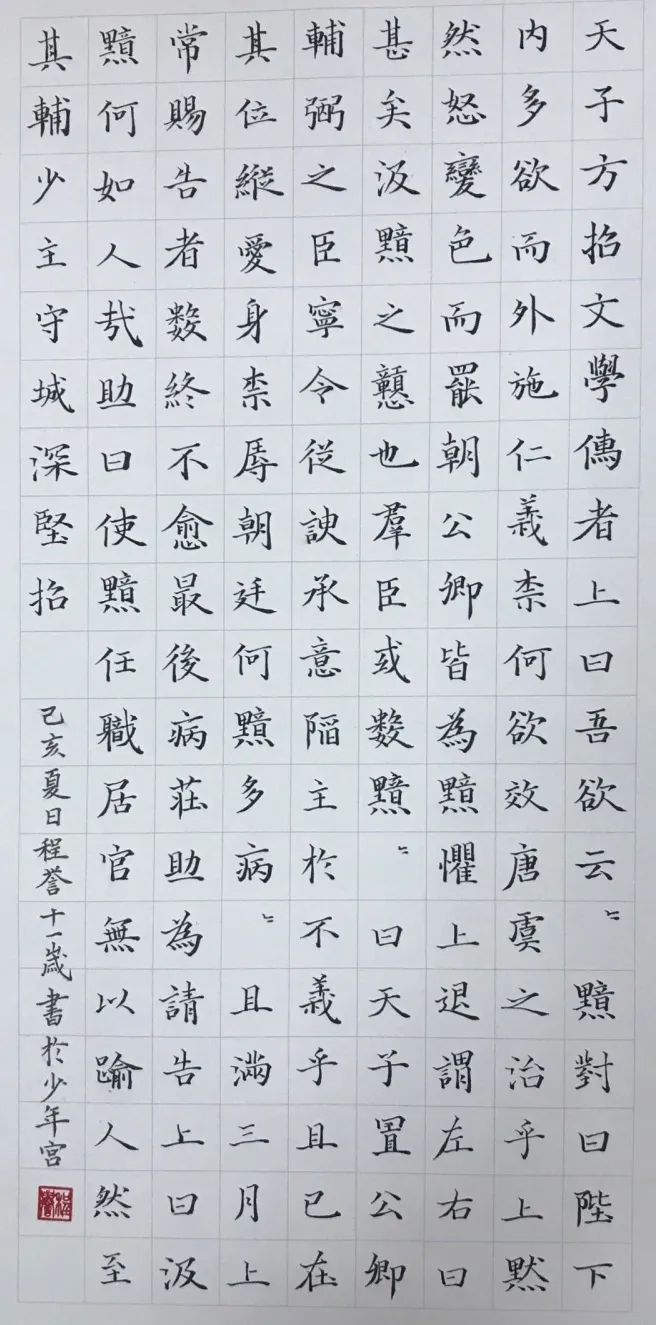 天子方招文學儒者上曰吾欲云〻黯對曰陛下
内多欲而外施仁義柰何欲效唐虞之治乎上黙
然怒變色而罷朝公卿皆為黯懼上退謂左右曰
甚矣汲黯之戇也羣臣或數黯〻曰天子置公卿
輔弼之臣寧令從諛承意陷主於不義乎且已在
其位縱愛身柰辱朝廷何黯多病〻且滿三月上
常賜告者數終不愈最後病莊助為請告上曰汲
黯何如人哉助曰使黯任職居官無以踰人然至
其輔少主守城深堅招
己亥夏日程誉十一歲書於少年宫